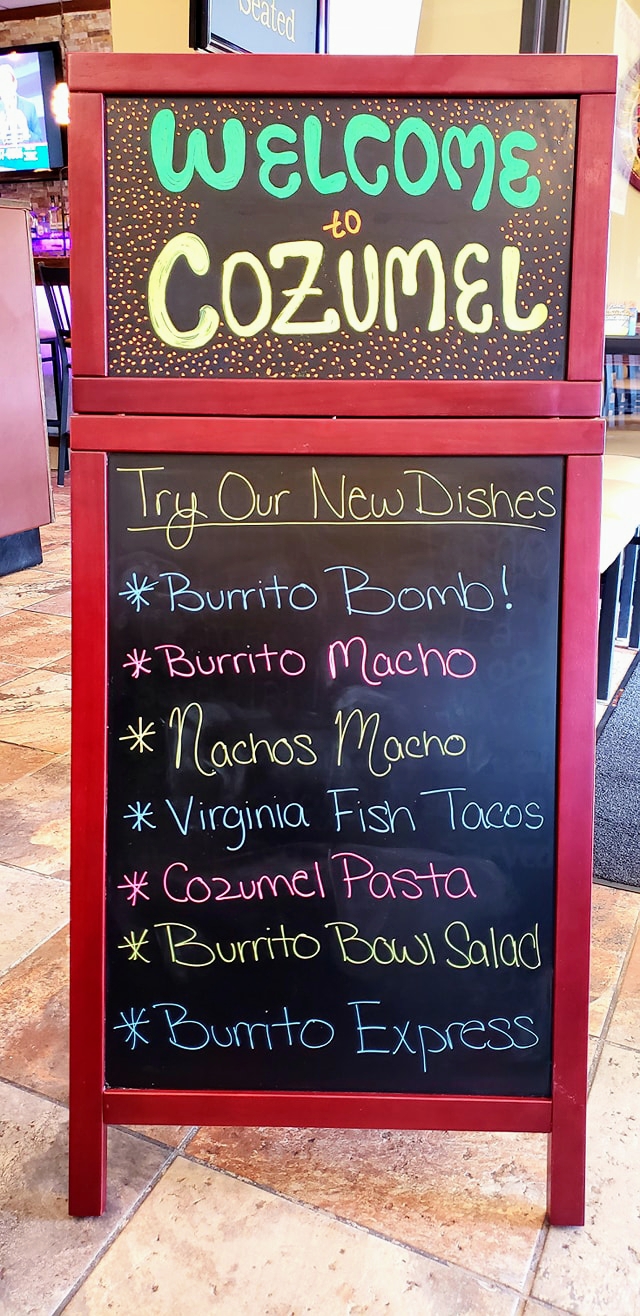 Seated
WELCOME
to
COZUMEL
Try Our New Dishes
* Burrito Bomb!
* Burrito Macho
* Nachos Macho
* Virginia Fish Tacos
* Cozumel Pasta
* Burrito Bowl Salad
* Burrito Express